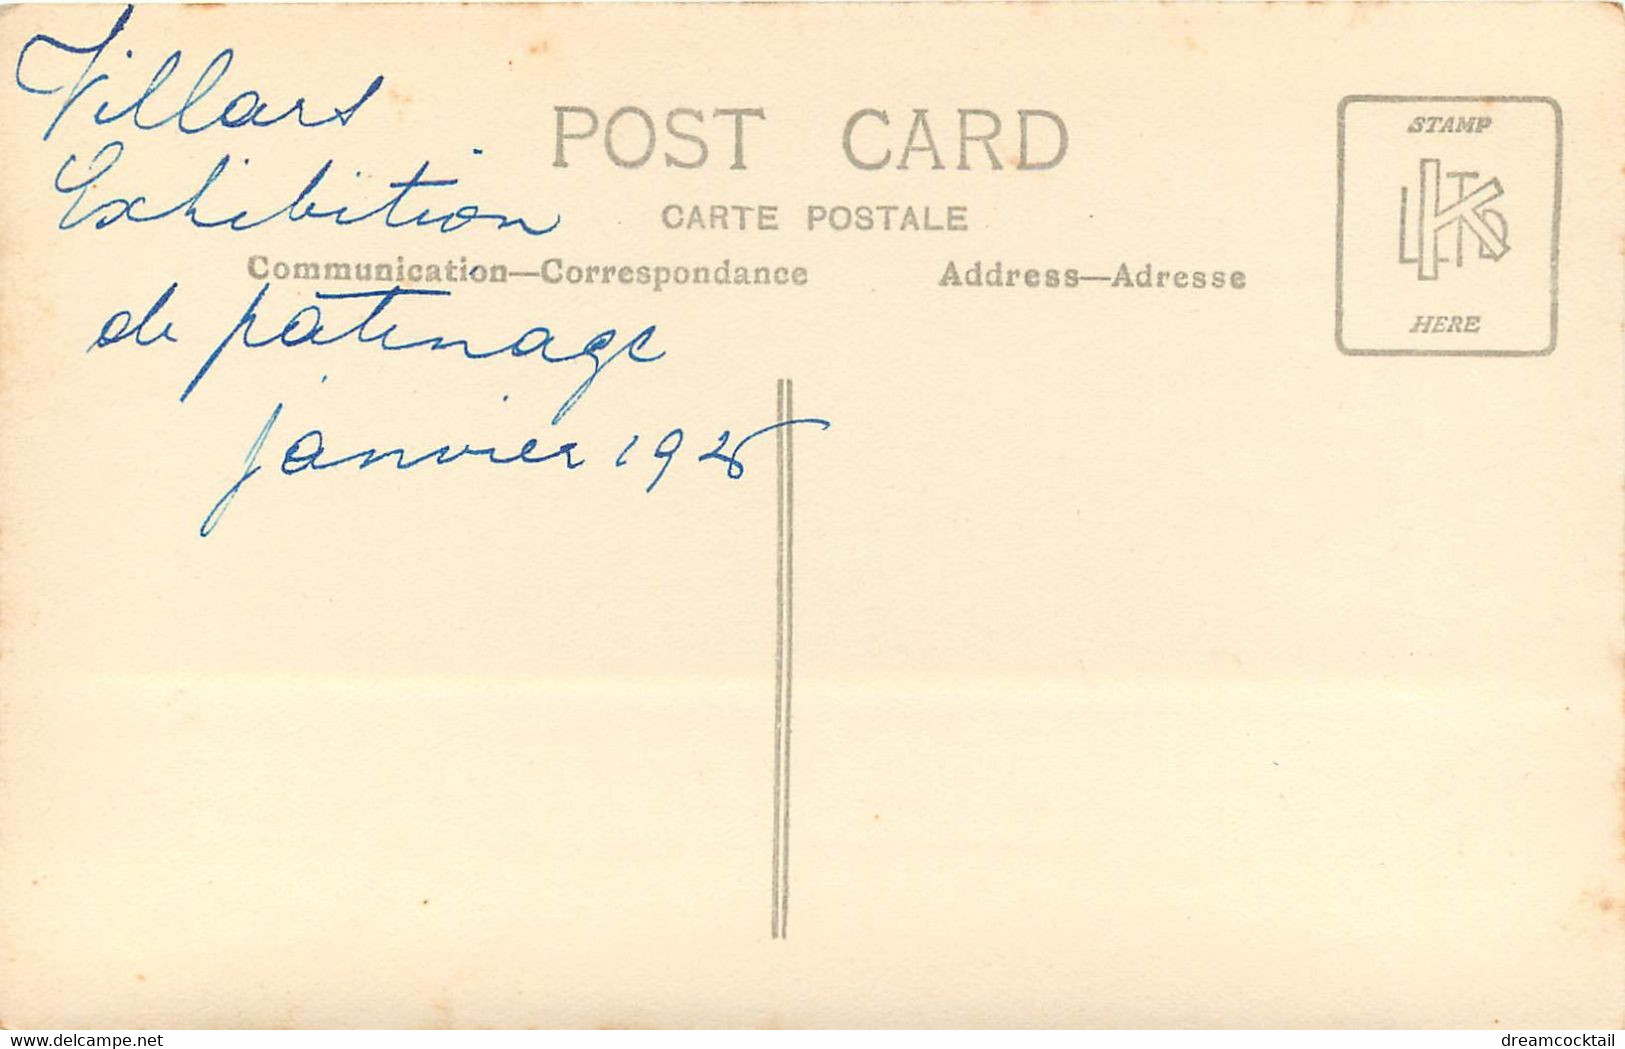 Villars
Exhibition
de patinage
janvier 1926
POST CARD
CARTE POSTALE
Communication—Correspondance
Address—Adresse
STAMP
K LTD
HERE
delcampe.net
dreamcocktail